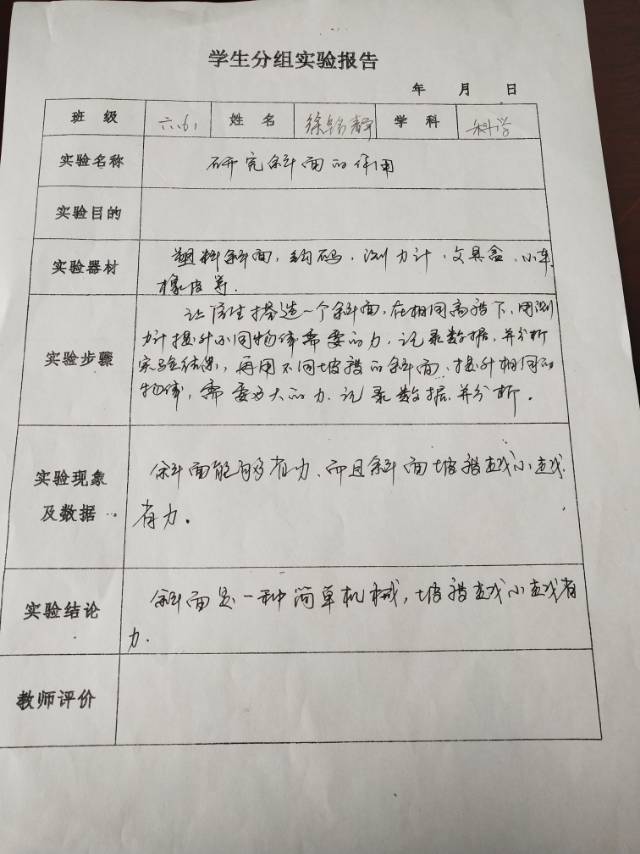 学生分组实验报告
年 月 日
班级 六.(6) 姓名 徐 静 学科 科学
实验名称 研究斜面的作用
实验目的
实验器材 塑料斜面,钩码,测力计,文具盒,小车
橡皮等.
实验步骤 让学生搭造一个斜面,在相同高度下,用测
力计提升不同物体需要的力,记录数据,并分析
实验结果,再用不同坡度的斜面,提升相同的
物体,需要多大的力,记录数据并分析.
实验现象及数据 斜面能够有力、而且斜面坡度越小越
有力.
实验结论 斜面是一种简单机械,坡度越小越有
力.
教师评价